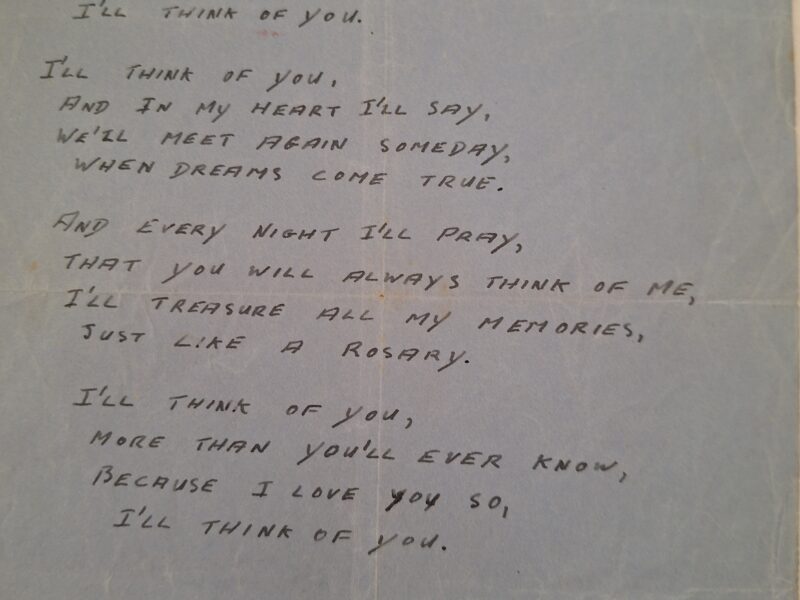 I'LL THINK OF YOU.
I'LL THINK OF YOU,
AND IN MY HEART I'LL SAY,
WE'LL MEET AGAIN SOMEDAY,
WHEN DREAMS COME TRUE.
AND EVERY NIGHT I'LL PRAY,
THAT YOU WILL ALWAYS THINK OF ME,
I'LL TREASURE ALL MY MEMORIES,
JUST LIKE A ROSARY.
I'LL THINK OF YOU,
MORE THAN YOU'LL EVER KNOW,
BECAUSE I LOVE YOU SO,
I'LL THINK OF YOU.